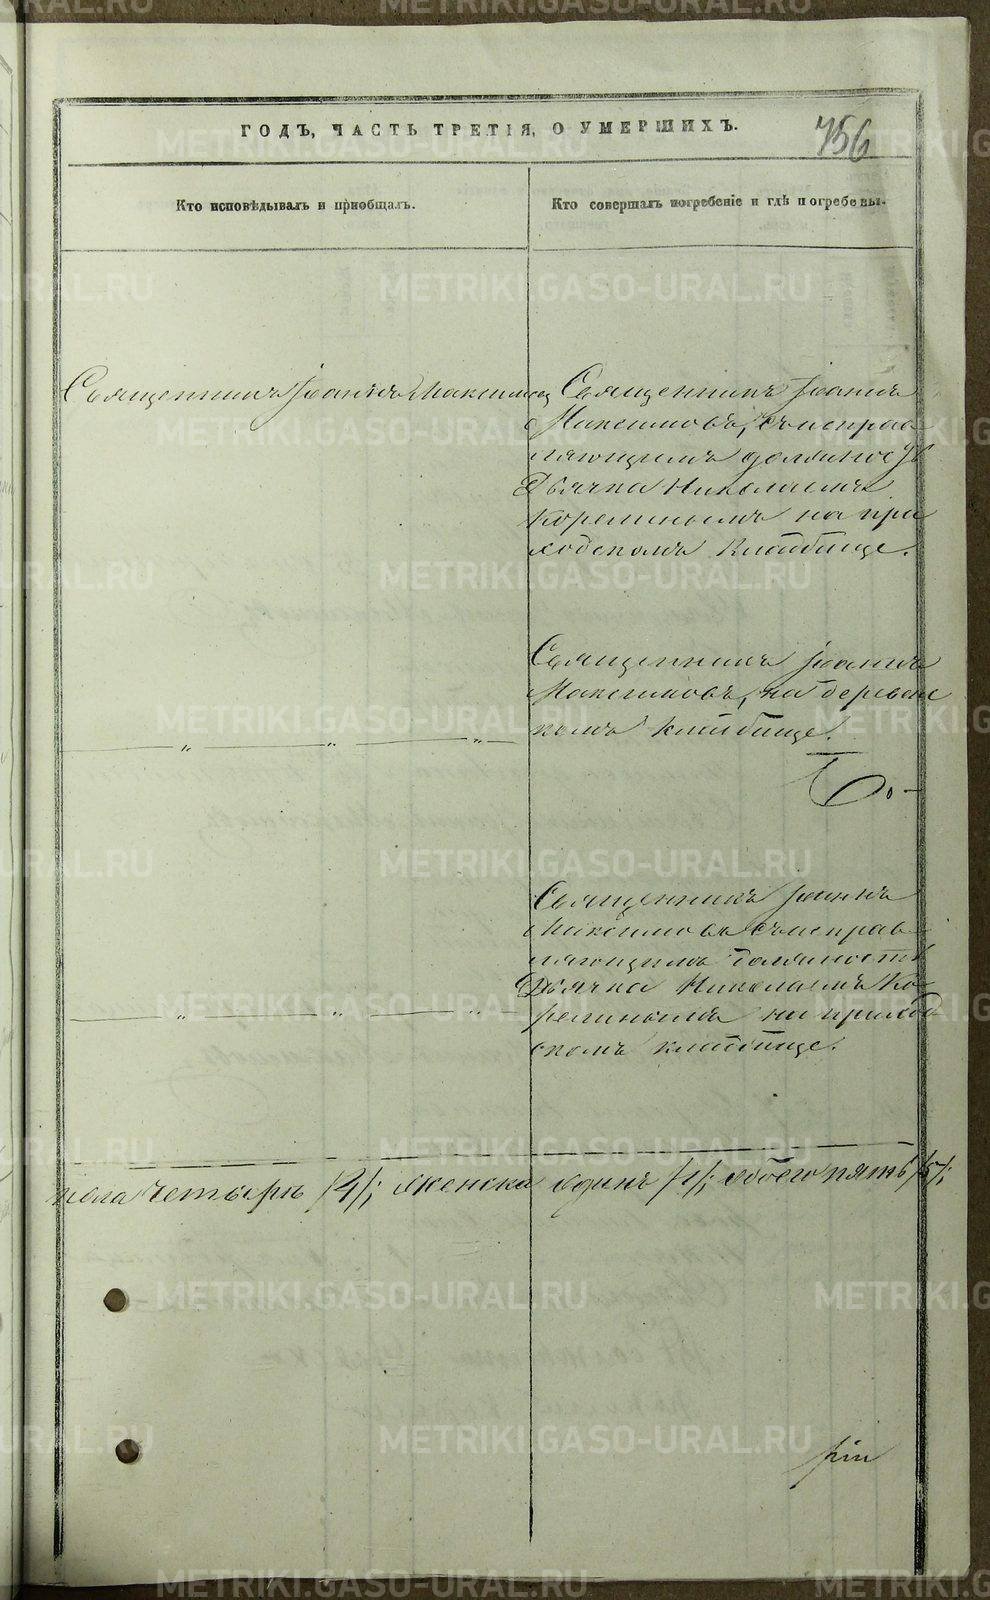 ГОДЪ, ЧАСТЬ ТРЕТІЯ, О УМЕРШИХЪ.
756
Кто исповѣдывалъ и пріобщалъ.
Кто совершалъ погребеніе и гдѣ погребены.
Священникъ Іоаннъ Максимовъ
Священникъ Іоаннъ
Максимовъ, съ исправ
ляющимъ должность
Дьячка Николаемъ
Корелинымъ на при
ходскомъ кладбище.
Священникъ Іоаннъ
Максимовъ, на деревен
скомъ кладбище.
Священникъ Іоаннъ
Максимовъ съ исправ
ляющимъ должность
Дьячка Николаемъ Ко
релинымъ на приход
скомъ кладбище.
пола четыре /4/; женска одинъ /1/; обоего пять /5/;
METRIKI.GASO-URAL.RU